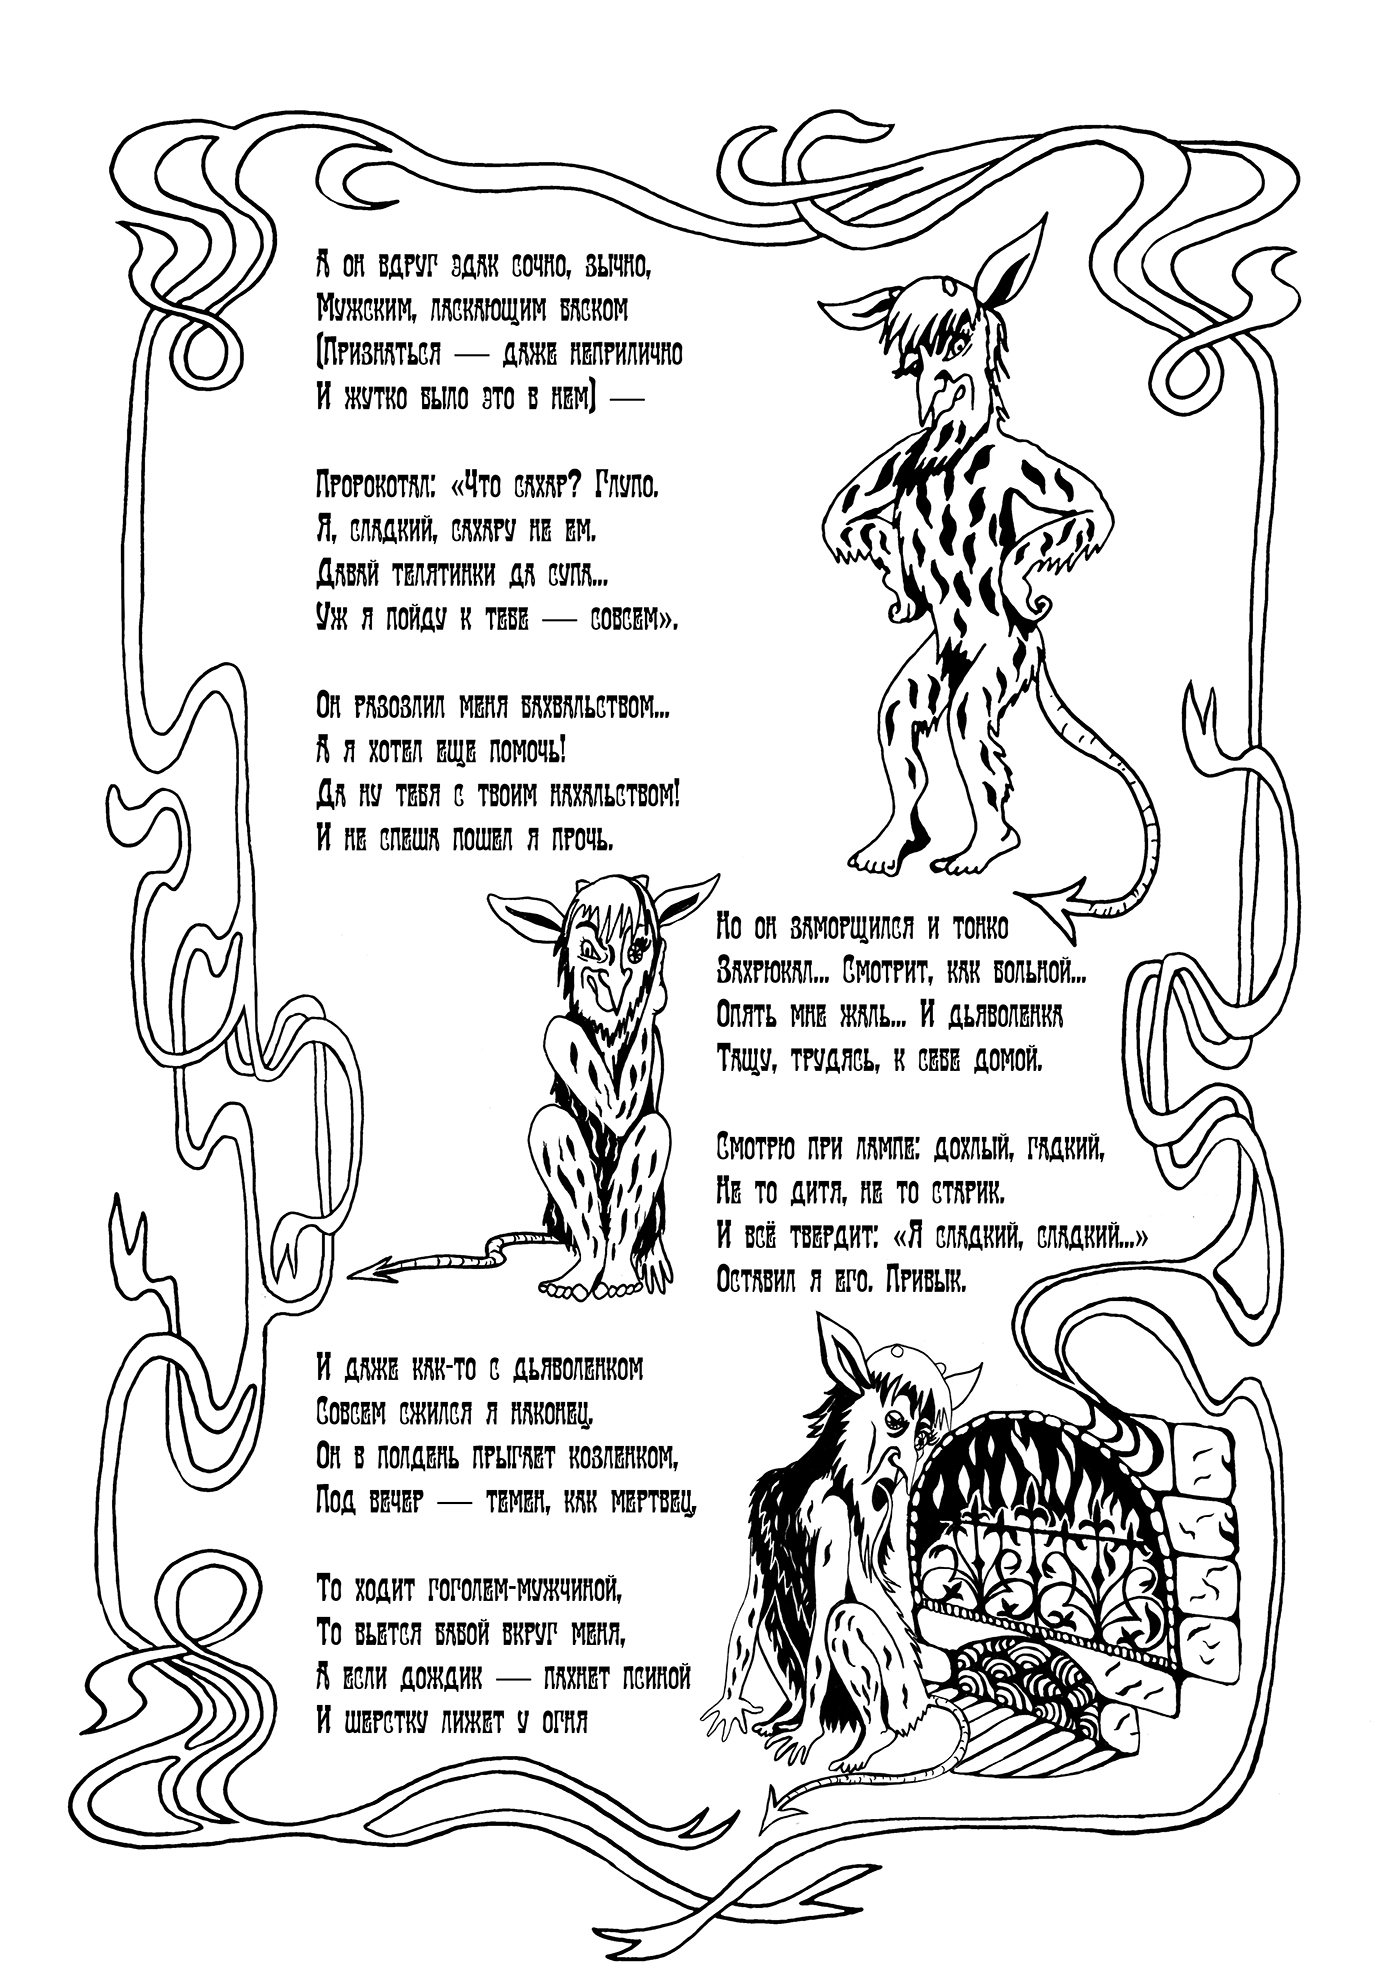 А он вдруг эдак сочно, зычно,
Мужским, ласкающим баском
(Признаться — даже неприлично
И жутко было это в нем) —
Пророкотал: «Что сахар? Глупо.
Я, сладкий, сахару не ем.
Давай телятинки да супа...
Уж я пойду к тебе — совсем».
Он разозлил меня бахвальством...
А я хотел еще помочь!
Да ну тебя с твоим нахальством!
И не спеша пошел я прочь.
Но он заморщился и тонко
Захрюкал... Смотрит, как больной...
Опять мне жаль... И дьяволенка
Тащу, трудясь, к себе домой.
Смотрю при лампе: дохлый, гадкий,
Не то дитя, не то старик.
И всё твердит: «Я сладкий, сладкий...»
Оставил я его. Привык.
И даже как-то с дьяволенком
Совсем сжился я наконец.
Он в полдень прыгает козленком,
Под вечер — темен, как мертвец,
То ходит гоголем-мужчиной,
То вьется бабой вкруг меня,
А если дождик — пахнет псиной
И шерстку лижет у огня